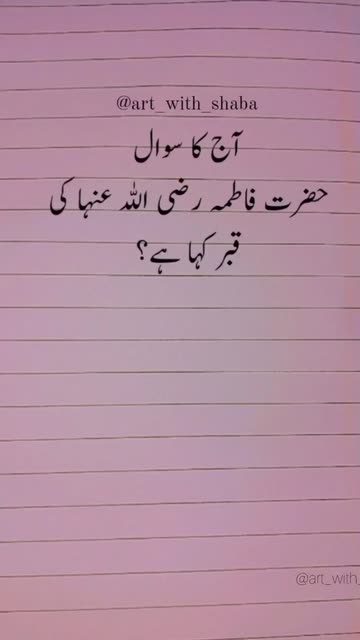 @art_with_shaba
آج کا سوال
حضرت فاطمہ رضی اللہ عنہا کی
قبر کہا ہے؟
@art_with_